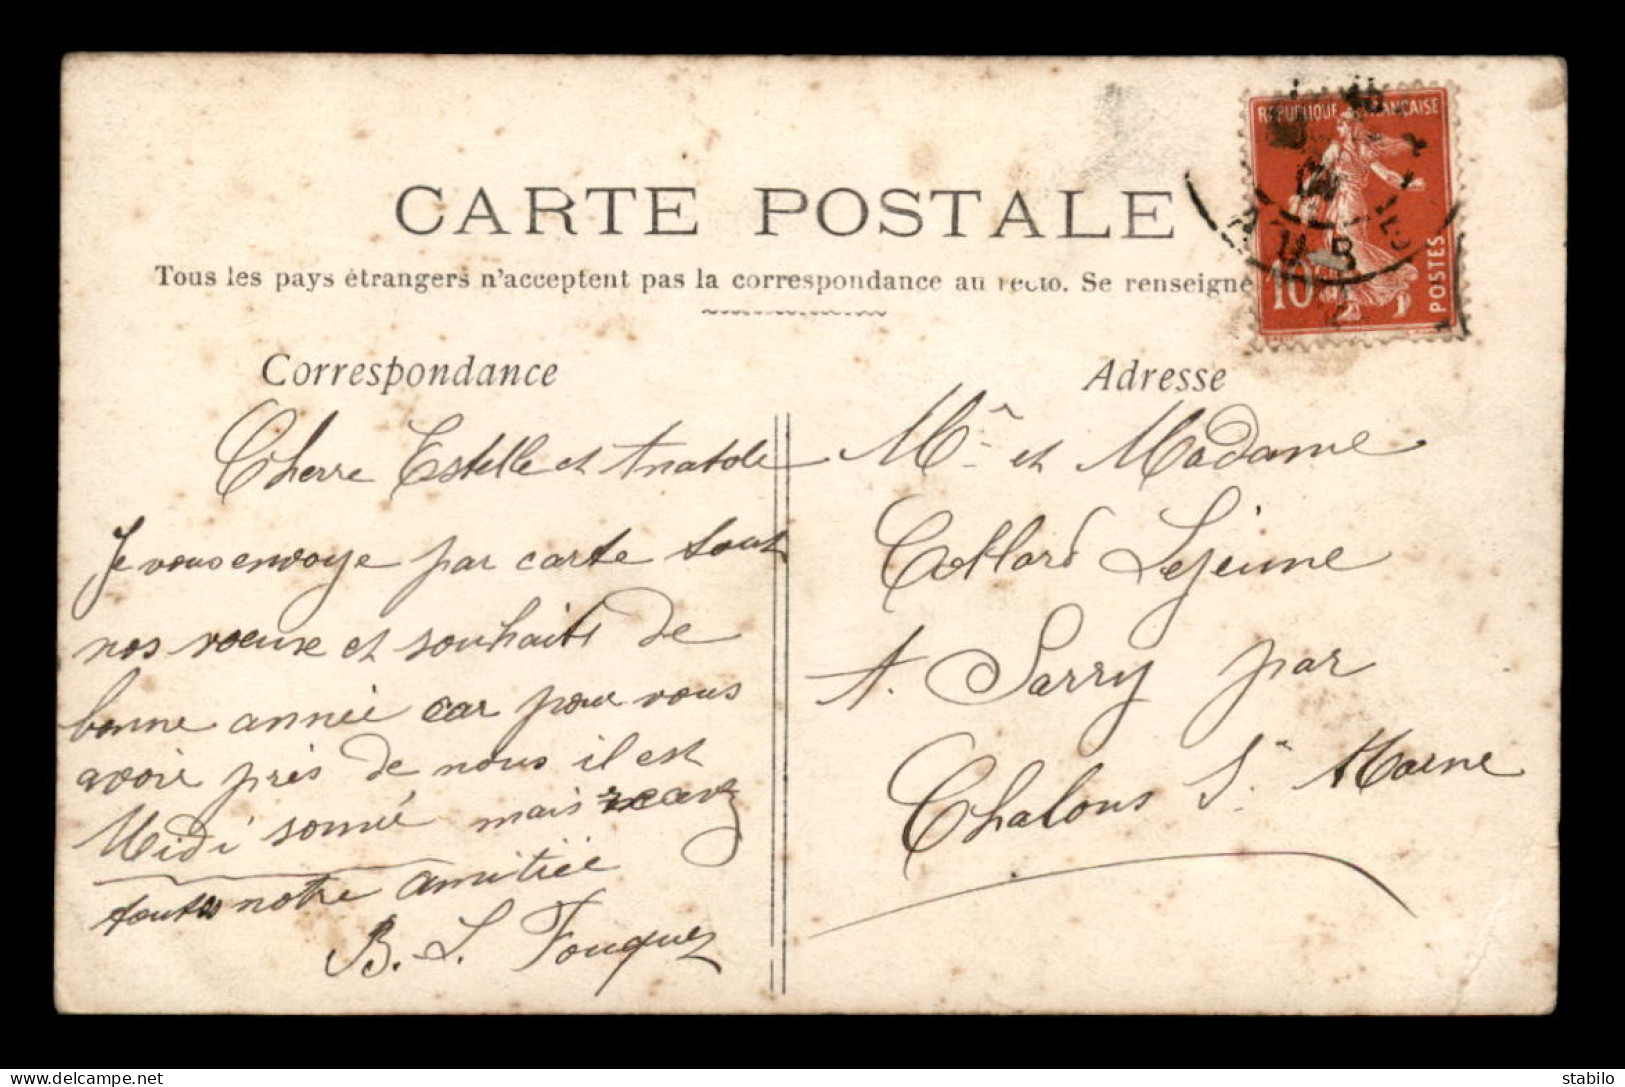 CARTE POSTALE
Tous les pays étrangers n'acceptent pas la correspondance au recto. Se renseigne
Correspondance
Cherre Estelle et Anatole
Je vous envoye par carte tout
nos voeux et souhaits de
bonne année car pour vous
avoir près de nous il est
Midi sonné mais recevez
toutes notre amitiée
B. L. Fouquez
Adresse
Mr et Madame
Collard Lejeune
A. Sarry par
Chalons S. Marne
REPUBLIQUE FRANÇAISE
10
POSTES
delcampe.net
stabilo